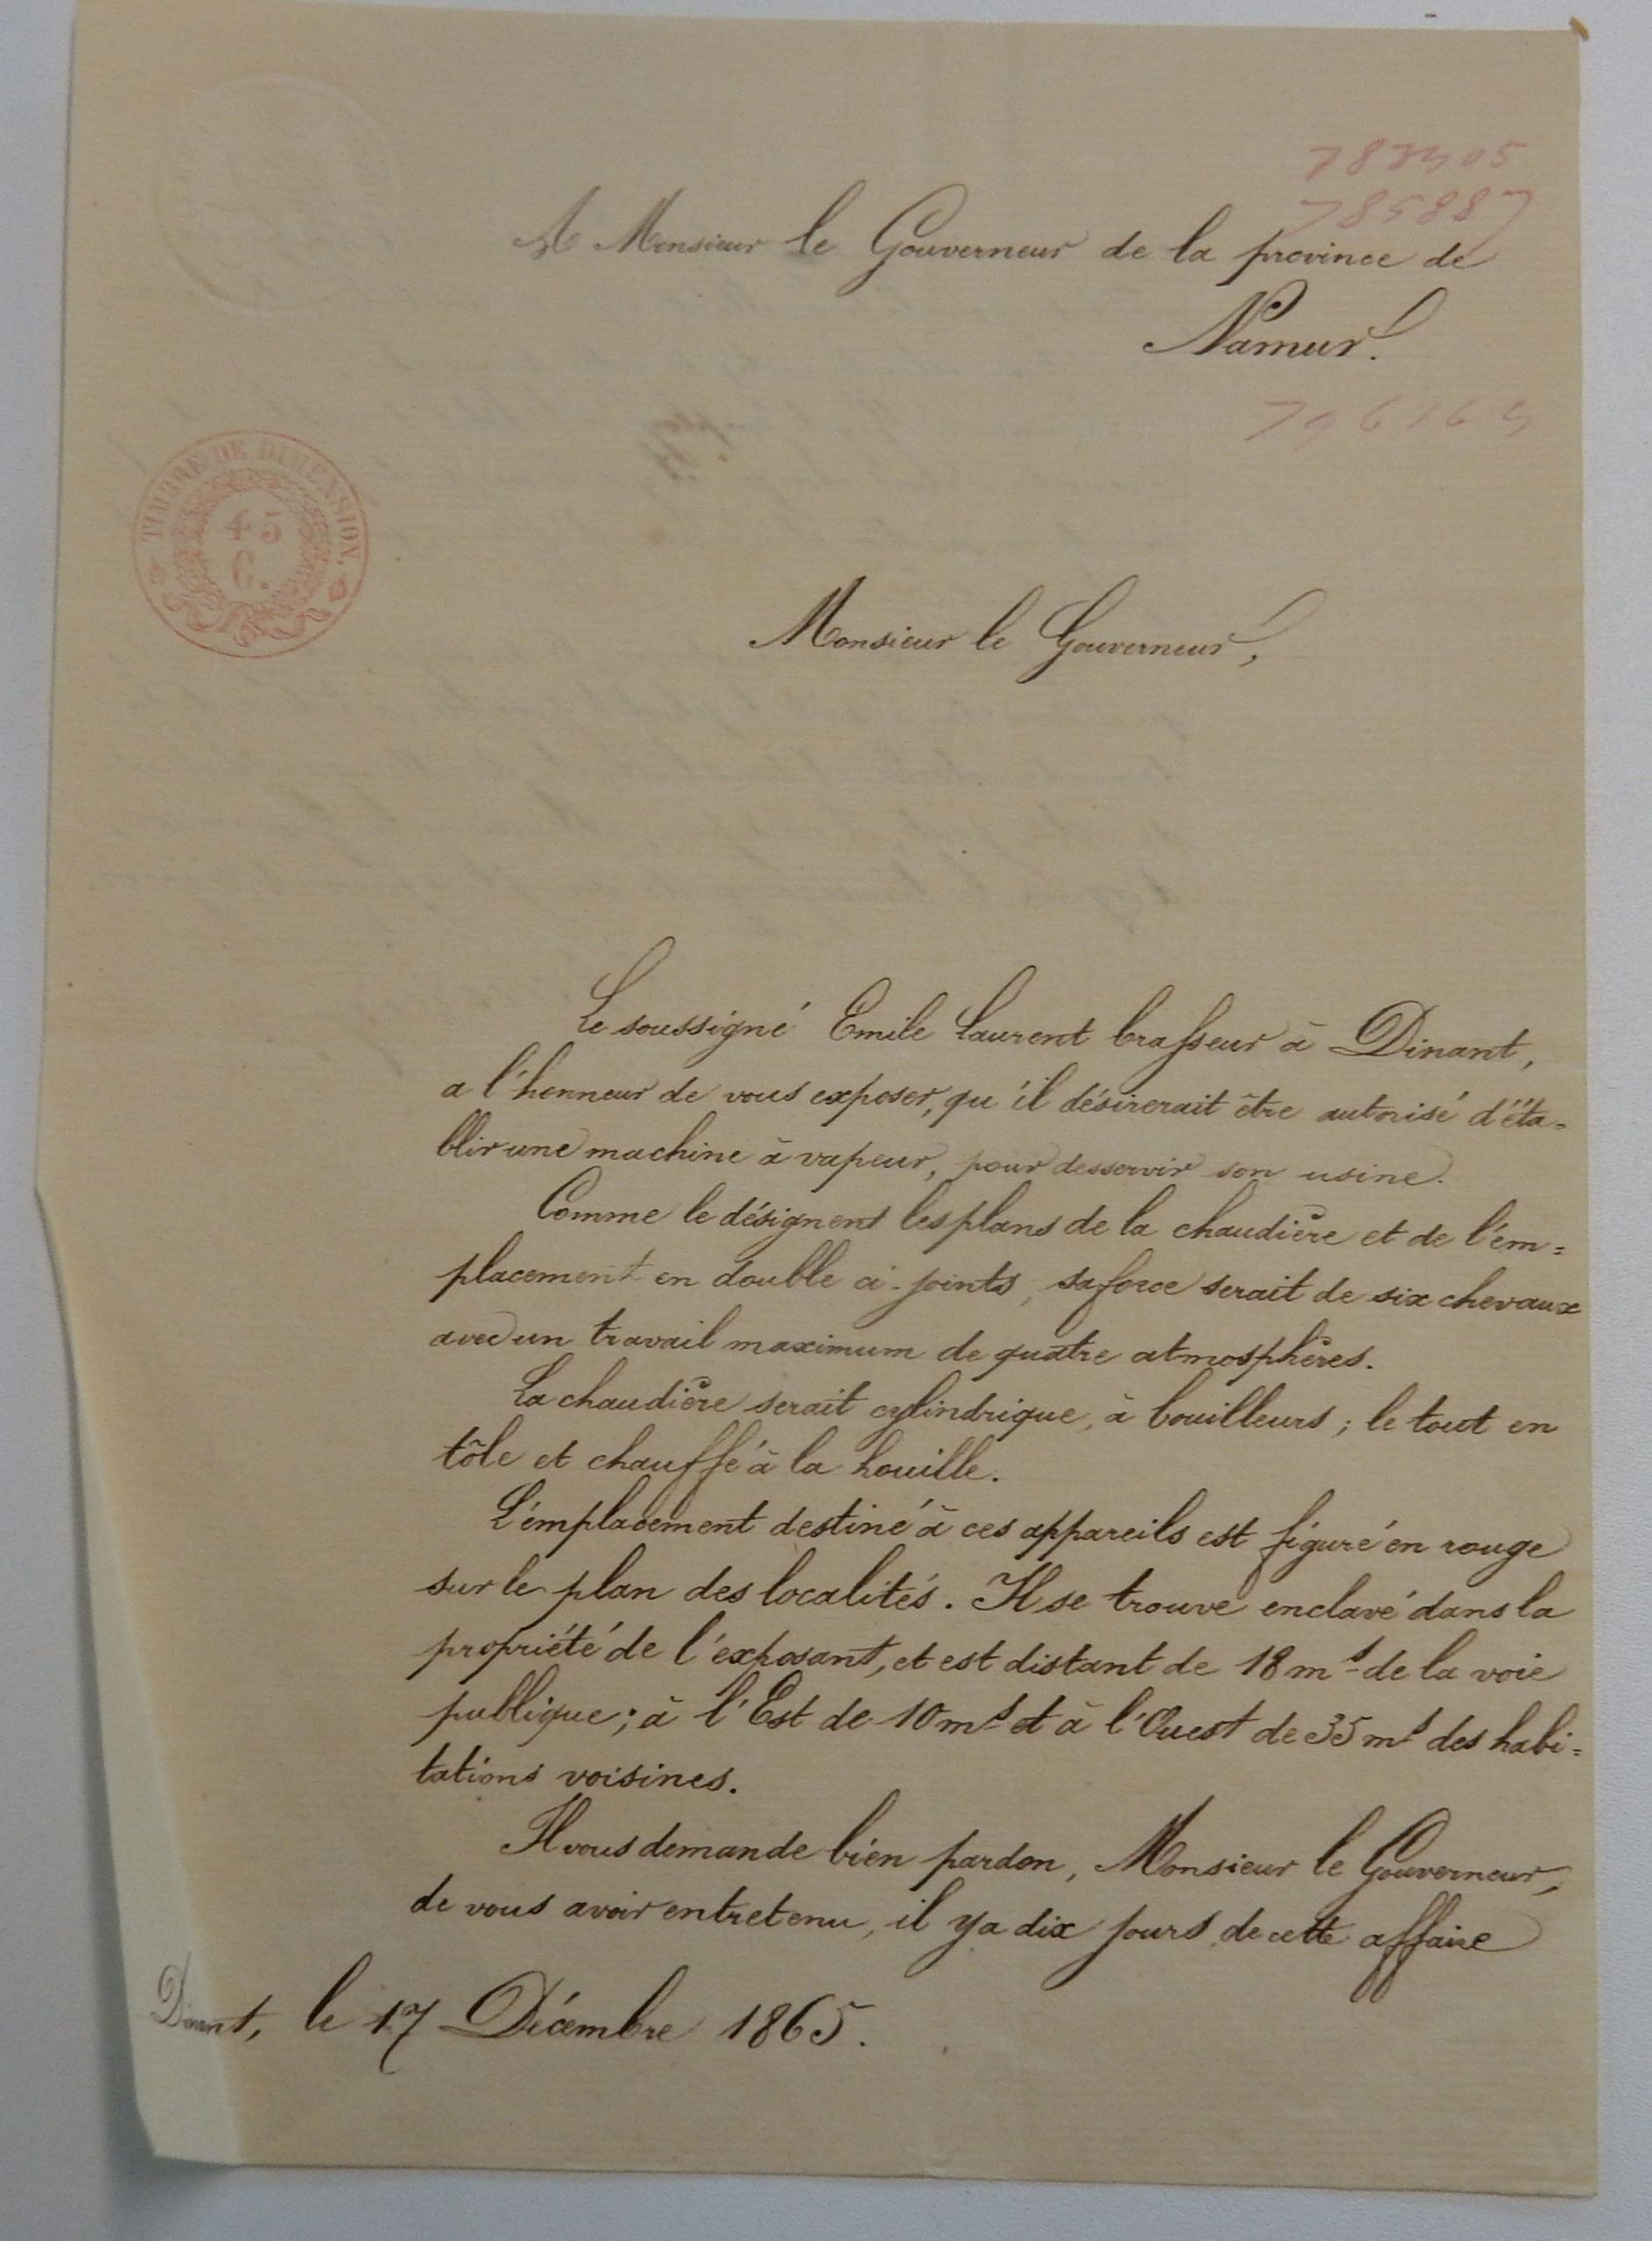 783405
785887
A Monsieur le Gouverneur de la province de
Namur.
796164
TIMBRE DE DIMENSION.
45
C.
Monsieur le Gouverneur,
Le soussigné Emile Laurent brasseur à Dinant,
a l'honneur de vous exposer, qu'il désirerait être autorisé d'éta=
blir une machine à vapeur, pour desservir son usine.
Comme le désignent les plans de la chaudière et de l'ém=
placement en double ci-joints, sa force serait de six chevaux
avec un travail maximum de quatre atmosphères.
La chaudière serait cylindrique, à bouilleurs ; le tout en
tôle et chauffé à la houille.
L'émplacement destiné à ces appareils est figuré en rouge
sur le plan des localités. Il se trouve enclavé dans la
propriété de l'exposant, et est distant de 18 ms de la voie
publique ; à l'Est de 10 ms et à l'Ouest de 35 ms des habi=
tations voisines.
Il vous demande bien pardon, Monsieur le Gouverneur,
de vous avoir entretenu, il y a dix jours, de cette affaire
Dinant, le 17 Décembre 1865.